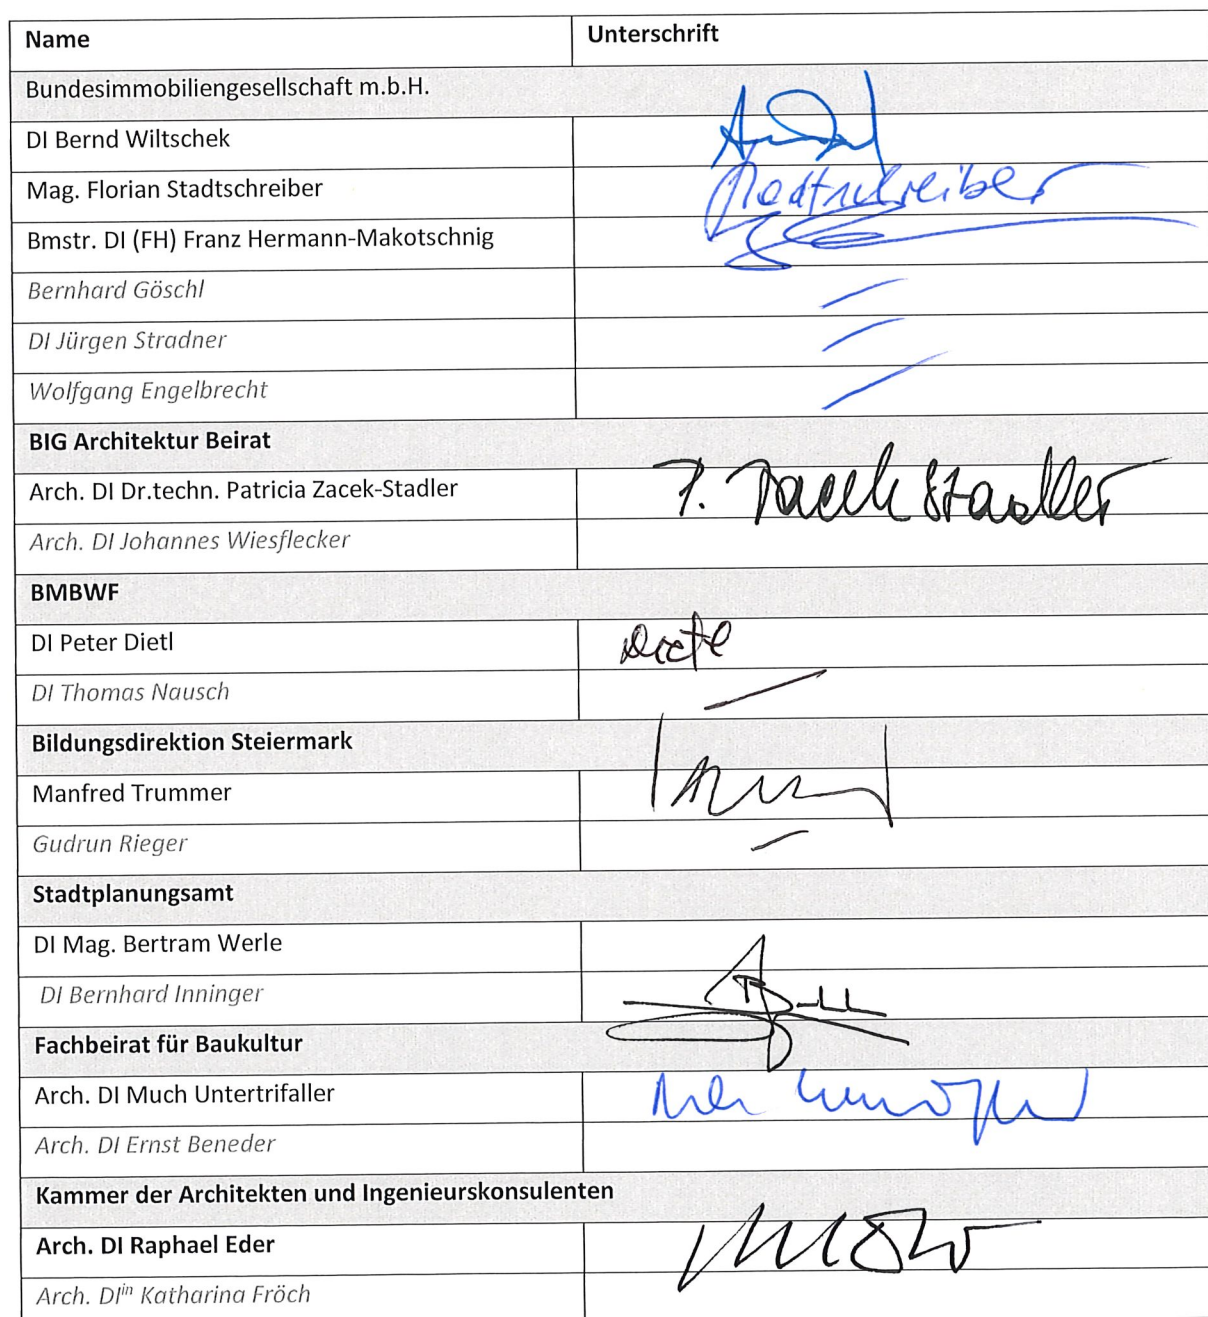 Name Unterschrift
Bundesimmobiliengesellschaft m.b.H.
DI Bernd Wiltschek
Mag. Florian Stadtschreiber Stadtschreiber
Bmstr. DI (FH) Franz Hermann-Makotschnig
Bernhard Göschl
DI Jürgen Stradner
Wolfgang Engelbrecht
BIG Architektur Beirat
Arch. DI Dr.techn. Patricia Zacek-Stadler P. Zacek Stadler
Arch. DI Johannes Wiesflecker
BMBWF
DI Peter Dietl Dietl
DI Thomas Nausch
Bildungsdirektion Steiermark
Manfred Trummer
Gudrun Rieger
Stadtplanungsamt
DI Mag. Bertram Werle
DI Bernhard Inninger
Fachbeirat für Baukultur
Arch. DI Much Untertrifaller
Arch. DI Ernst Beneder
Kammer der Architekten und Ingenieurskonsulenten
Arch. DI Raphael Eder
Arch. DIⁱⁿ Katharina Fröch